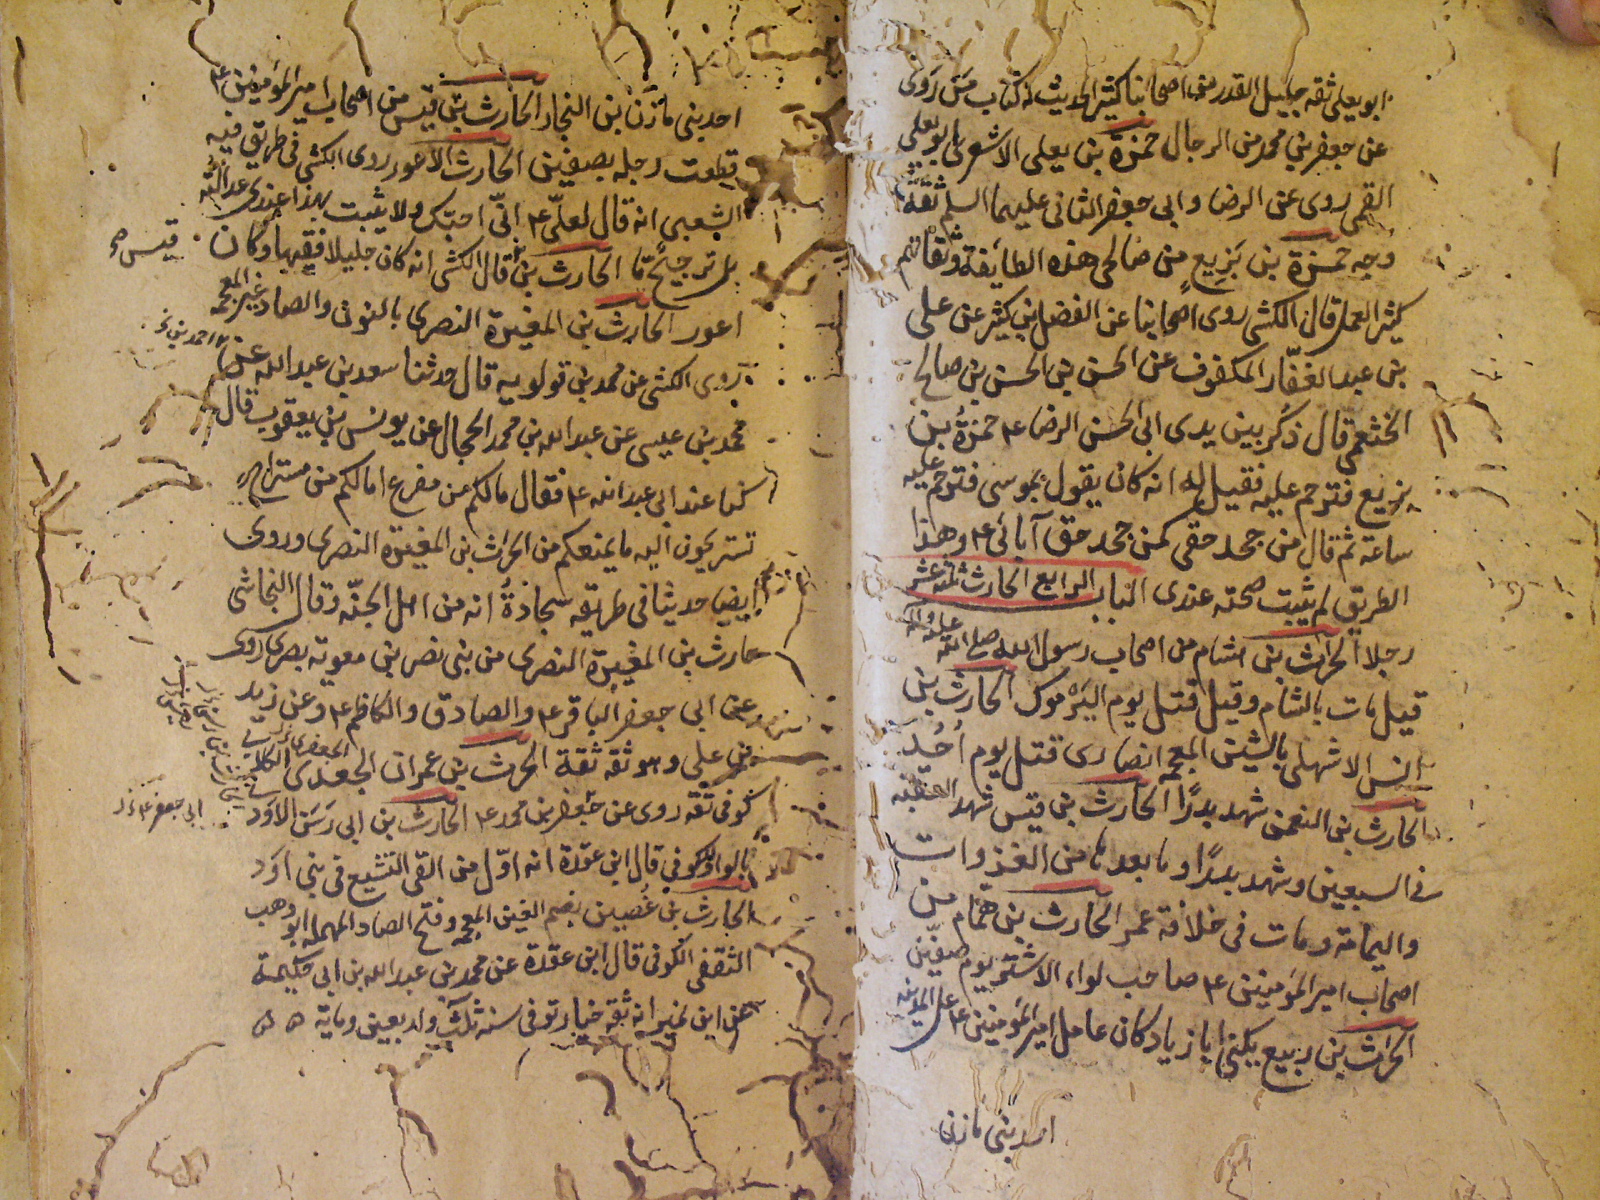 ابو يعلى ثقه جليل القدر من اصحابنا كثير الحديث له كتاب من روى
عن جعفر بن محمد من الرجال حمزة بن يعلى الاشعرى ابو يعلى
القمى روى عن الرضا و ابى جعفر الثانى عليهما السلم ثقة
وجه حمزة بن بزيع من صالحى هذه الطائفة وثقاتهم
كثير العمل قال الكشى روى اصحابنا عن الفضل بن كثير عن على
بن عبد الغفار المكفوف عن الحسن بن الحسن بن صالح
الخثعمى قال ذكر بين يدى ابى الحسن الرضا ع حمزة بن
بزيع فترحم عليه فقيل له انه كان يقول بموسى فترحم عليه
ساعة ثم قال من جحد حقى كمن جحد حق آبائى ع وهذا
الطريق لم يثبت صحته عندى الباب الرابع الحارث ثلثة عشر
رجلا الحرث بن هشام من اصحاب رسول الله صلى الله عليه واله
قيل مات بالشام وقيل قتل يوم اليرموك الحارث بن
انس الاشهلى بالشين المعجمه انصارى قتل يوم احد
الحارث بن النعمن شهد بدرا الحارث بن قيس شهد العقبه
فى السبعين وشهد بدرا وما بعدها من الغزوات
واليمامة ومات فى خلافة عمر الحارث بن همام من
اصحاب امير المؤمنين ع صاحب لواء الاشتر يوم صفين
الحرث بن ربيع يكنى ابا زياد كان عامل امير المؤمنين ع على المدينه
احد بنى مازن
احد بنى مازن بن النجار الحارث بن قيس من اصحاب امير المؤمنين ع
قطعت رجله بصفين الحارث الاعور روى الكشى فى طريق فيه
الشعبى انه قال لعلى ع انى احبك ولا يثبت بهذا عندى عدالته
بل ترجيح ما الحارث بن قال الكشى انه كان جليلا فقيها وكان
قيس صح
اعور الحارث بن المغيرة النصرى بالنون والصاد غير المعجمه
روى الكشى عن محمد بن قولويه قال حدثنا سعد بن عبد الله عن
احمد بن
محمد بن عيسى عن عبد الله بن محمد الحجال عن يونس بن يعقوب قال
كنا عند ابى عبد الله ع فقال مالكم من مفزع امالكم من مستراح
تستريحون اليه ما يمنعكم من الحرث بن المغيرة النصرى وروى
ايضا حديثا فى طريقه سجادة انه من اهل الجنه وقال النجاشى
حارث بن المغيرة النصرى من بنى نصر بن معوية بصرى روى
عن ابى جعفر الباقر ع والصادق والكاظم ع وعن زيد
بن على وهو ثقه ثقة الحرث بن عمران الجعدى الكلابى
الجعفرى
كوفى ثقه روى عن جعفر بن محمد ع الحارث بن ابى رسن الاود
ابى جعفر ع
بالواو كوفى قال ابن عقدة انه اول من القى التشيع فى بنى اود
الحارث بن غصين بضم الغين المعجمه وفتح الصاد المهمله ابو وهب
الثقفى الكوفى قال ابن عقدة عن محمد بن عبد الله بن ابى حكيمة
عن ابن نمير انه ثقه خيار توفى سنه ثلث واربعين ومايه